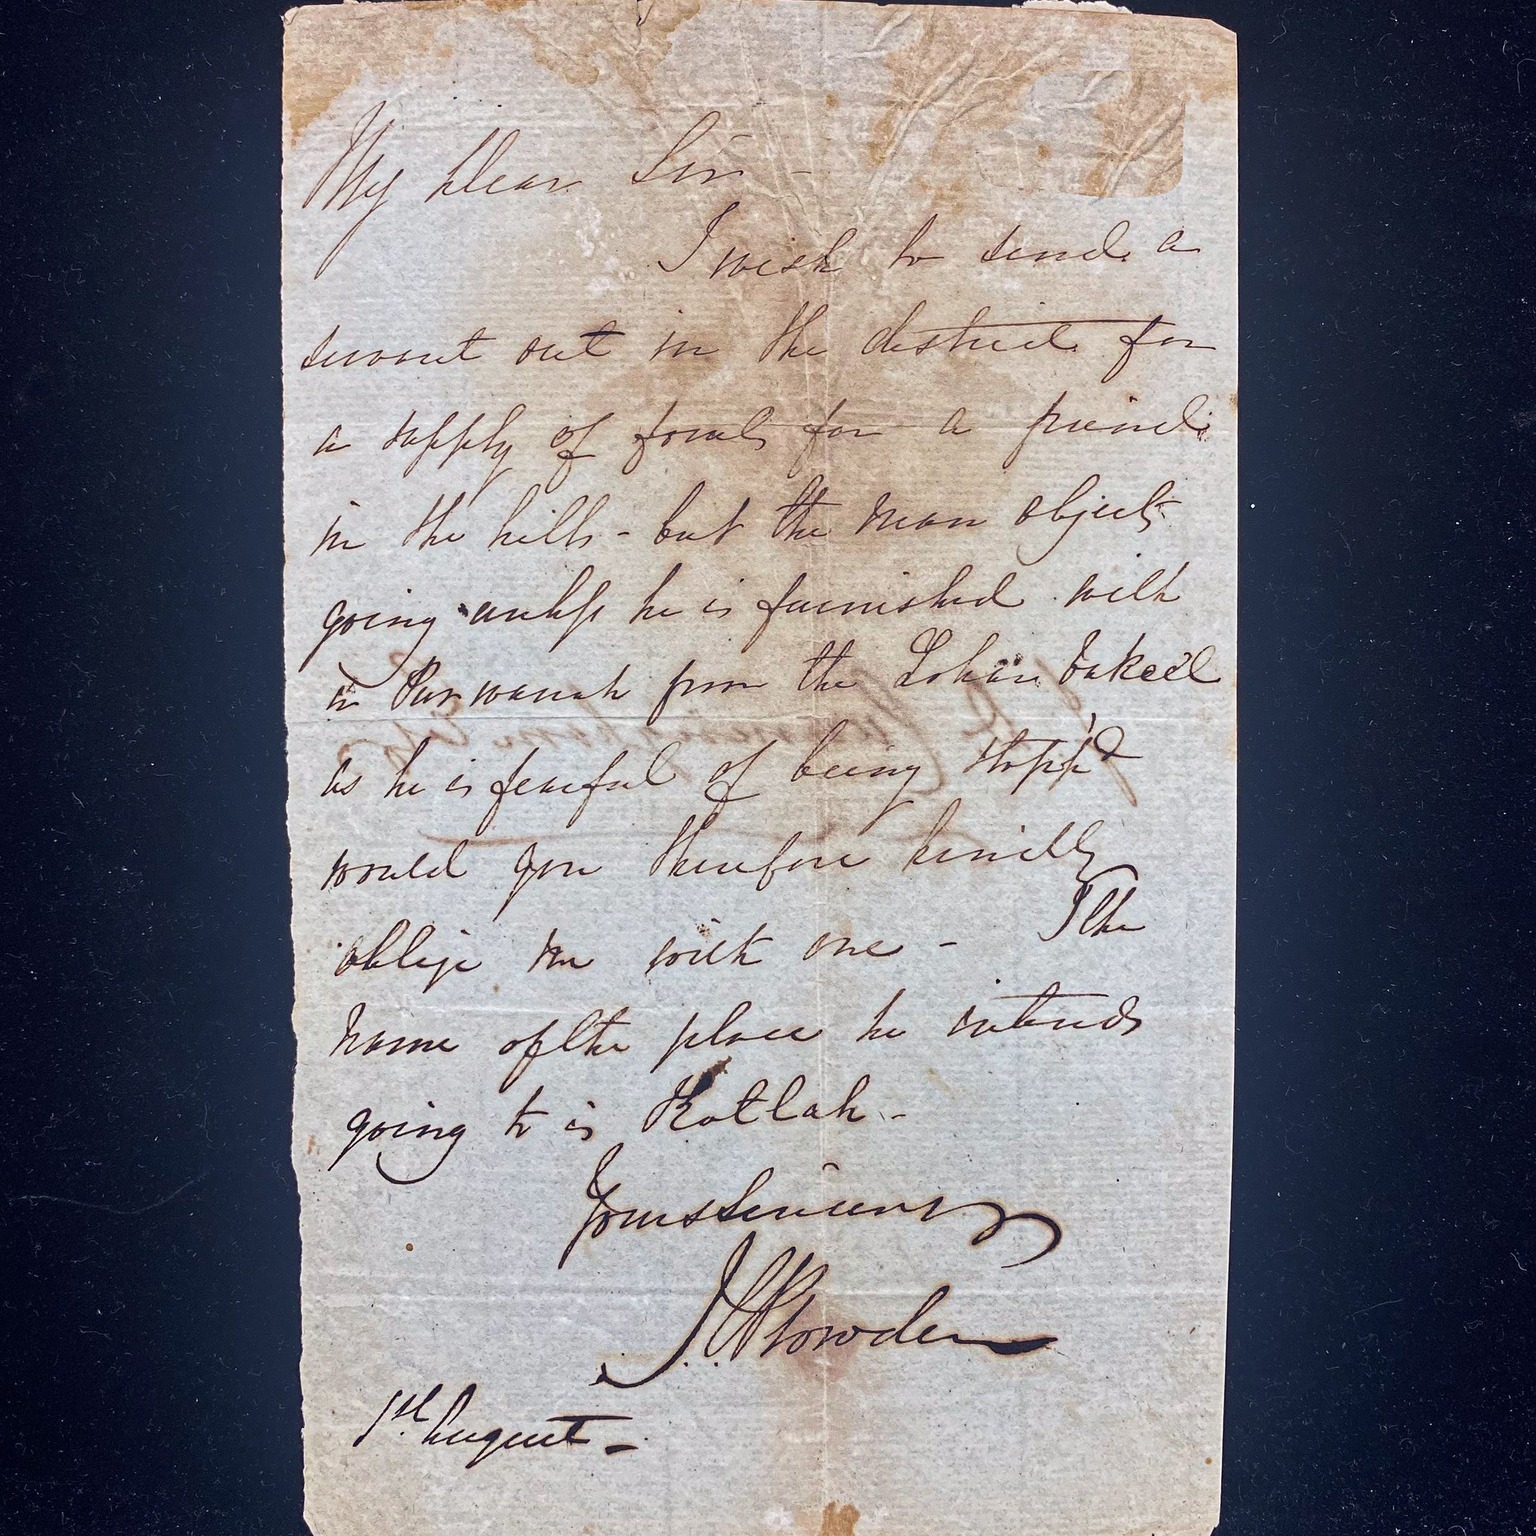 My Dear Sir -
I wish to send a
servant out in the district for
a supply of fowls for a friend
in the hills - but the man objects
going unless he is furnished with
a Purwanah from the Vakeel
as he is fearful of being stopp'd
would you therefore kindly
oblige me with one - The
name of the place he intends
going to is Kotlah -
Yours sincerely
J C Plowden
August -